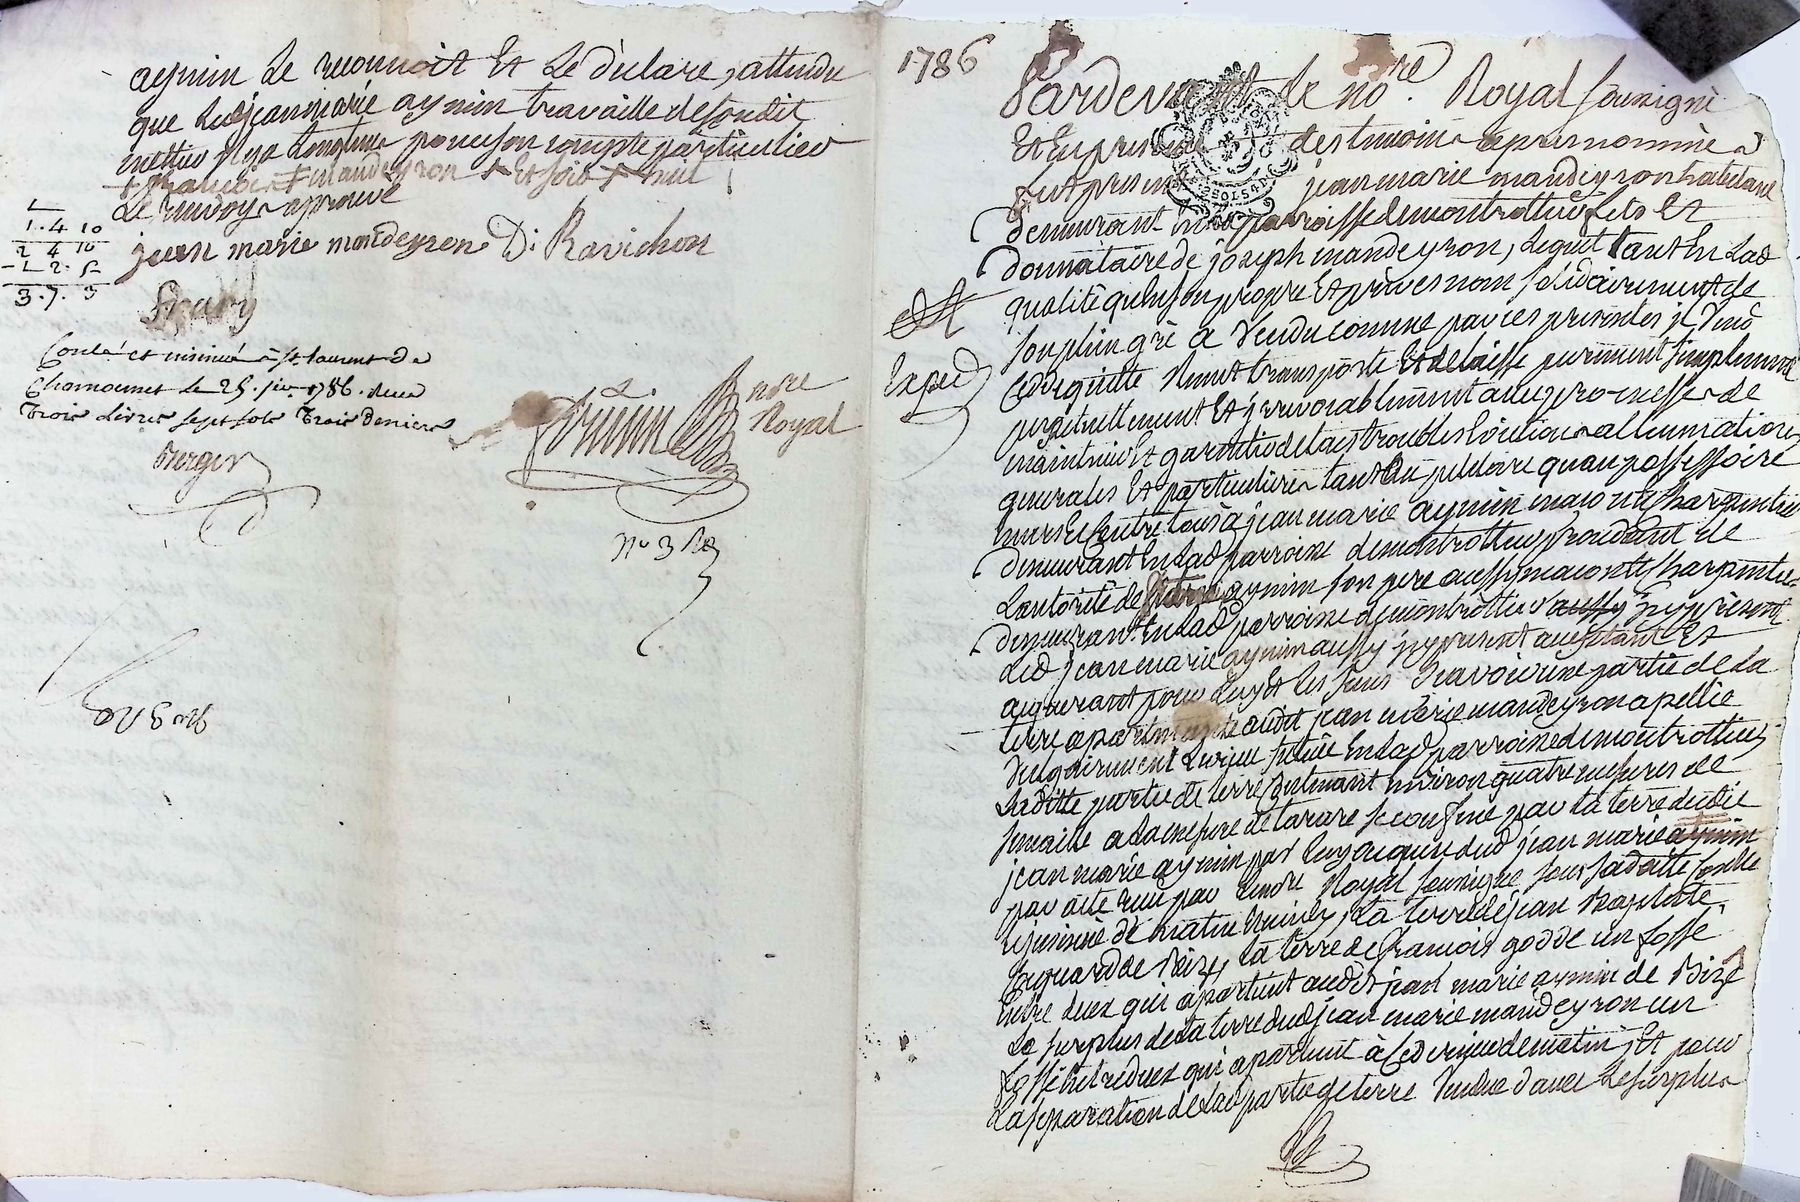 aymin Le reconnoit Et Le dèclare, attendu
que Ledjeanmarie aymin travaille desondit
mettier Depuis Longtems pour son compte particulier
+ françois + mandeyron + Et soir + huit
Le renvoy aprouvé
jean marie mandeyron D. Ravichon
1. 4 10
2 4 10
1 2. 5
3. 7. 3
Controlé et insinué à St laurent De
Chamousset le 25. jer. 1786. Recu
Trois Livres sept sols Trois Deniers
Berger
nore
Royal
No 3
1786
Pardevant Le nore. Royal soussigné
Et En presence des temoins aprés nommés
fut present jean marie mandeyron habitant
demeurant En Lad parroisse de montrottier fils Et
donnataire de joseph mandeyron, Lequel tant En Lad
qualité qu'en son propre Et privé nom solidairement de
son plein gré a Vendu comme par ces presentes il Vend
Cede quitte Remet transporte Et delaisse purement simplement
Exped
perpetuellement Et jrrevocablement avec promesse de
maintenir Et garentir de tous troubles Evictions allienations
generales Et particulieres tant Au petitoire quau possessoire
Envers Et Contre tous à jean marie aymin macon Et Charpentier
demeurant En Lad parroisse de montrottier procedant de
Lautorité de aymin son pere aussy macon Et Charpentier
demeurant En Lad parroisse de montrottier aussy jcy présent
Led jean marie aymin aussy jcy present acceptant Et
aquerant pour Luy Et Les siens Scavoir une partie de La
terre apartenante audit jean marie mandeyron apellée
Vulgairement située En Lad parroisse de montrottier
Laditte partie de terre Contenant Environ quatre mesures de
semaille a La mesure de tarare se confine par la terre dudit
jean marie aymin par Luy acquise dud jean marie aymin
par acte reçu par Lenore Royal soussigné sous sa datte Controllé
Et jnsinué de matin La terre de jean Baptiste
de Bize, La terre de francois godde un fossé
Entre deux qui apartient aud jean marie aymin de Bize
Le surplus de La terre dud jean marie mandeyron un
fossé Entre deux qui apartient à de matin, Et pour
La separation de Lad partie de terre Vendue d'avec Le surplus